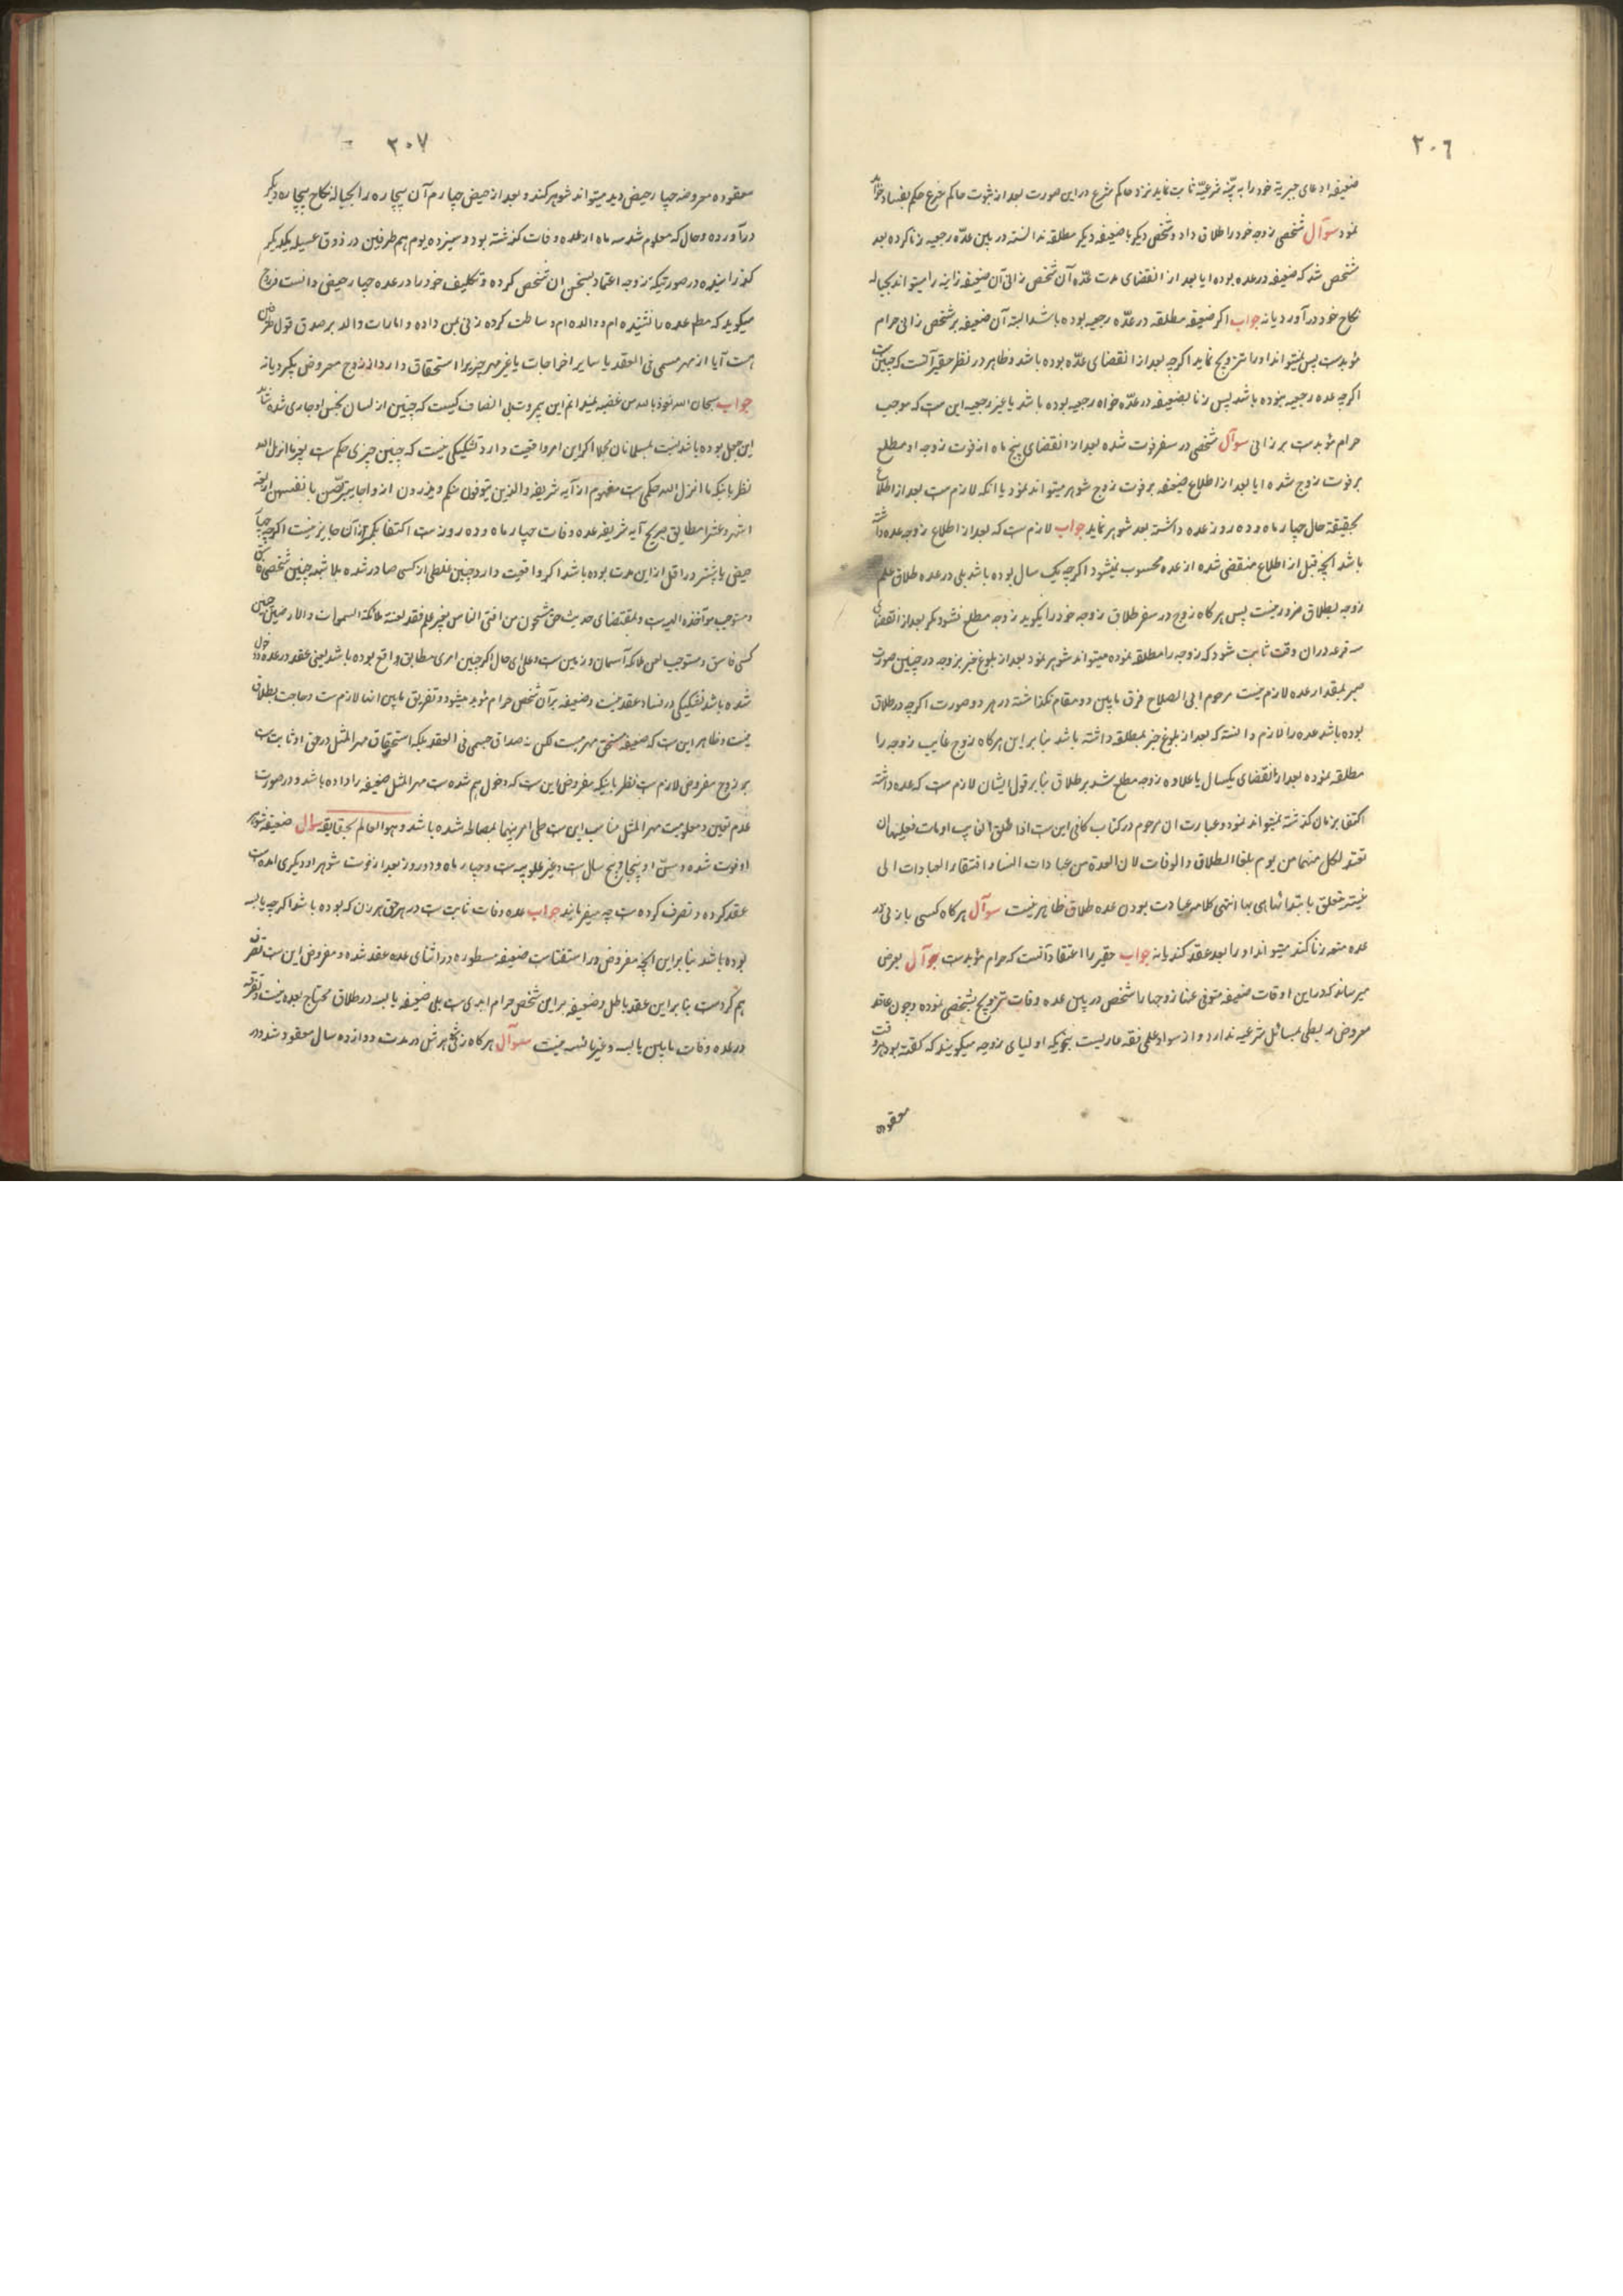 ٢٠٦
ضعیفه ادعای جبریة خود را به بیّنه شرعیّه ثابت نماید نزد حاکم شرع در این صورت بعد از ثبوت حاکم شرع حکم بفساد خواهد
نمود سوآل شخصی زوجه خود را طلاق داد و شخصی دیگر با ضعیفه دیگر مطلقه ندانسته در بین عدّه رجعیه زنا کرده بعد
مشخص شد که ضعیفه در عده بوده ایا بعد از انقضای مدت عدّه آن شخص زانی آن ضعیفه زانیه را میتواند بحباله
نکاح خود در آورد یا نه جواب اکر ضعیفه مطلقه در عدّه رجعیه بوده باشد البته آن ضعیفه بر شخص زانی حرام
مؤبدست پس نمیتواند او را تزویج نماید اکرچه بعد از انقضای عدّه بوده باشد و ظاهر در نظر حقیر آنست که چنین است
اکرچه عده رجعیه نبوده باشد پس زنا بضعیفه در عدّه خواه رجعیه بوده باشد یا غیر رجعیه این ست که موجب
حرام مؤبدست بر زانی سوآل شخصی در سفر فوت شده بعد از انقضای پنج ماه از فوت زوجه او مطلع
بر فوت زوج شده ایا بعد از اطلاع ضعیفه بر فوت زوج شوهر میتواند نمود یا انکه لازم ست بعد از اطلاع
بحقیقة حال چهار ماه و ده روز عده داشته بعد شوهر نماید جواب لازم ست که بعد از اطلاع زوجه عده داشته
باشد انچه قبل از اطلاع منقضی شده از عده محسوب نمیشود اکرچه یک سال بوده باشد بلی در عده طلاق علم
زوجه بطلاق ضرور نیست پس هرکاه زوج در سفر طلاق زوجه خود را بکوید زوجه مطلع نشود مکر بعد از انقضای
سه قرء در ان وقت ثابت شود که زوجه را مطلقه نموده میتواند شوهر نمود بعد از بلوغ خبر بزوجه در چنین صورت
صبر بمقدار عده لازم نیست مرحوم ابی الصلاح فرق مابین دو مقام نکذاشته در هر دو صورت اکرچه در طلاق
بوده باشد عده را لازم دانسته که بعد از بلوغ خبر بمطلقه داشته باشد بنا بر این هرکاه زوج غایب زوجه را
مطلقه نموده بعد از انقضای یکسال یا علاوه زوجه مطلع شد بر طلاق بنا بر قول ایشان لازم ست که عده داشته
اکتفا بزمان کذشته نمیتواند نمود و عبارت ان مرحوم در کتاب کافی این ست اذا طلق الغایب او مات فعلیهما ان
تعتد لکل منهما من یوم بلغها الطلاق و الوفات لان العدة من عبادات النساء و افتقار العبادات الی
نیة تتعلق بابتدائها هی بها انتهی کلامه عبادت بودن عده طلاق ظاهر نیست سوآل هرکاه کسی با زنی در
عده متعه زنا کند میتواند او را بعد عقد کند یا نه جواب حقیر را اعتقاد آنست که حرام مؤبدست سوآل بعرض
میرساند که در این اوقات ضعیفه متوفی عنها زوجها را شخص در بین عده وفات تزویج بشخصی نموده و چون عاقد
معروض ربطی بمسائل شرعیه ندارد و از سواد علمی فقه عاریست بنحویکه اولیای زوجه میکویند که کفته بود هر وقت
معقوده
٢٠٧
معقوده معروضه چهار حیض دید میتواند شوهر کند و بعد از حیض چهارم آن بیچاره را بحباله نکاح بیچاره دیکر
درآورده و حال که معلوم شد سه ماه از عده وفات کذشته بود و سیزده یوم هم طرفین در ذوق عسیله یکدیکر
کذرانیده در صورتیکه زوجه اعتماد بسخن ان شخص کرده و تکلیف خود را در عده چهار حیض دانست و زوج
میکوید که مطلع عده را نشنیده ام و والده ام وساطت کرده زنی بمن داده و امارات دال بر صدق قول طرفین
هست آیا از مهر مسمی فی العقد یا سایر اخراجات یا غیر مهر چیزیرا استحقاق دارد از زوج معروض بکیرد یا نه
جواب سبحان الله نعوذ بالله من غضبه نمیدانم این بیمروت بی انصاف کیست که چنین از لسان نجس او جاری شده شاید
این جعل بوده باشد نسبت بمسلمانان کلا اکر این امر واقعیت دارد تشکیکی نیست که چنین چیزی حکم ست بغیر ما انزل الله
نظر باینکه ما انزل الله حکمی ست مفهوم از آیه شریفه و الذین یتوفون منکم و یذرون ازواجا یتربّصن بانفسهن اربعة
اشهر و عشرا مطابق صریح آیه شریفه عده وفات چهار ماه و ده روز ست اکتفا بکمتر از آن جایز نیست اکرچه چهار
حیض یا بیشتر در اقل از این مدت بوده باشد اکر واقعیت دارد چنین غلطی از کسی صادر شده بلا شبهه چنین شخصی
مستوجب مؤاخذه الهی ست و بمقتضای حدیث حق مشحون من افتی الناس بغیر علم فقد لعنته ملائکة السموات و الارضین چنین
کسی فاسق و مستوجب لعن ملائکه آسمان و زمین ست و علی ای حال اکر چنین امری مطابق واقع بوده باشد یعنی عقد در عده و دخول
شده باشد تشکیکی در فساد عقد نیست و ضعیفه بر آن شخص حرام مؤبد میشود و تفریق مابین انها لازم ست و حاجت بطلاق
نیست و ظاهر این ست که ضعیفه مستحق مهر هست لکن نه صداق مسمی فی العقد بلکه استحقاق مهر المثل در حق او ثابت ست
بر زوج مفروض لازم ست نظر باینکه مفروض این ست که دخول هم شده ست مهر المثل ضعیفه را داده باشد و در صورت
عدم تعین و معلومیت مهر المثل مناسب این ست طی امر بینهما بمصالحه شده باشد و هو العالم بحقایقه سوال ضعیفه شوهر
او فوت شده و سنّ او پنجاه و پنج سال ست و غیر علویه ست و چهار ماه و دو روز بعد از فوت شوهر او دیکری امده ست
عقد کرده و تصرف کرده ست چه میفرمایند جواب عده وفات ثابت ست در هر حق هر زن که بوده باشد اکرچه یایسه
بوده باشد بنا بر این انچه مفروض در استفتاست ضعیفه مسطوره در اثنای عده عقد شده و مفروض این ست تصرف
هم کردست بنا بر این عقد باطل و ضعیفه بر این شخص حرام ابدی ست بلی ضعیفه یایسه در طلاق محتاج بعده نیست و تفرقه
در عده وفات مابین یایسه و غیر یایسه نیست سوآل هرکاه زنی بشوهرش در مدت دوازده سال معقود شد در